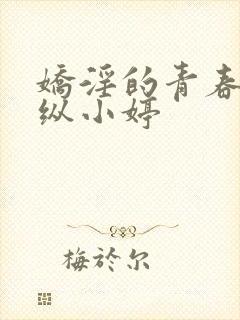 嬌淫的青春
纵小婷
梅於尔